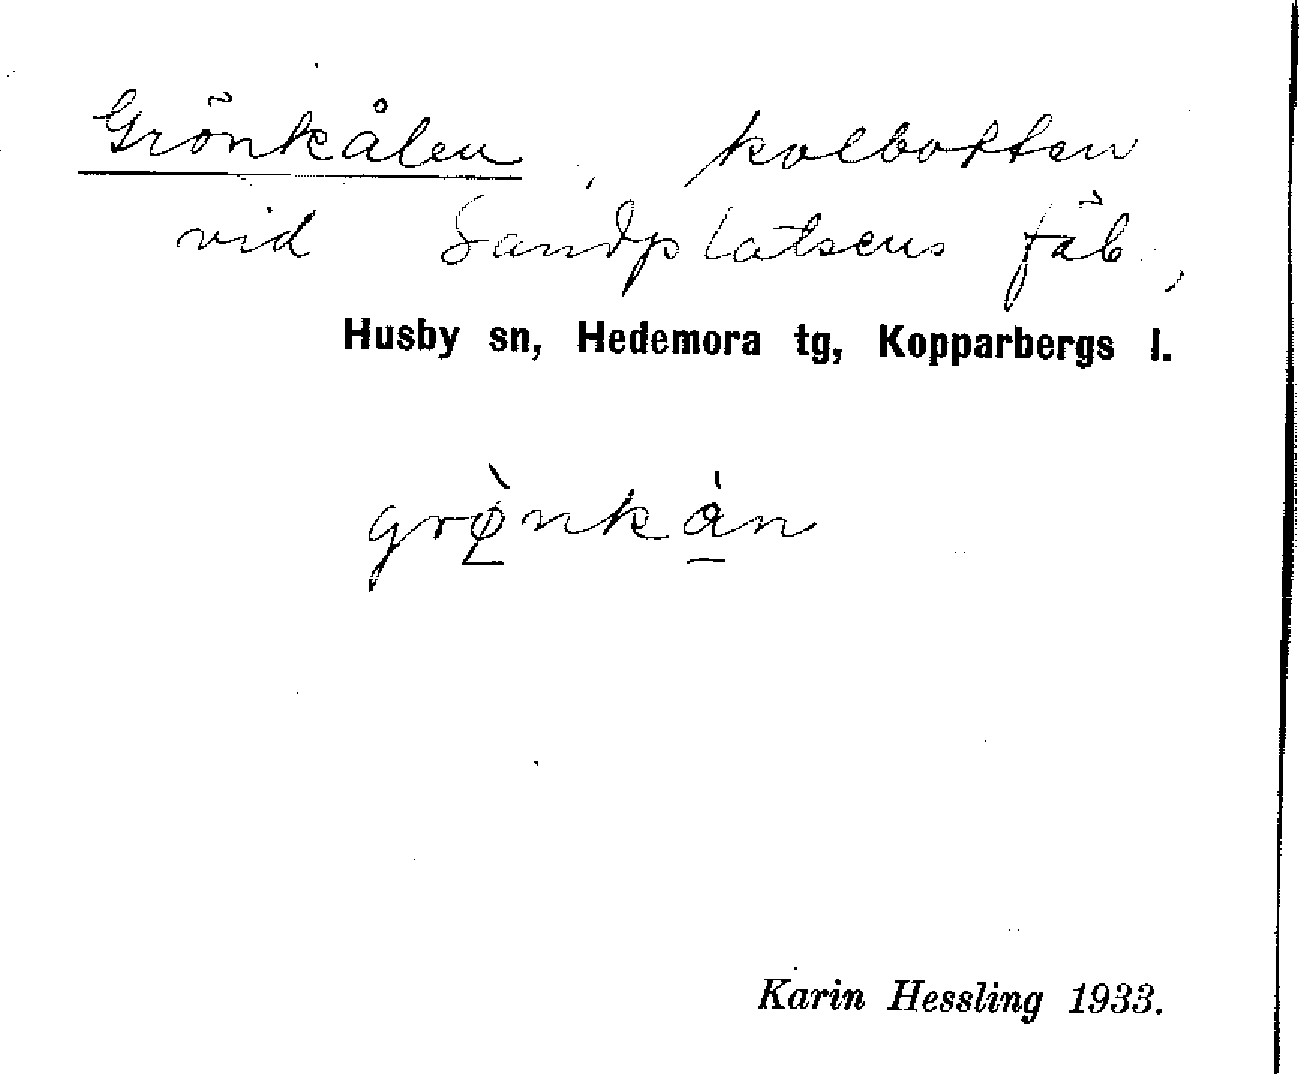 Grönkålen, kolbotten
vid Sandplatsens fäb.,
Husby sn, Hedemora tg, Kopparbergs l.
grø̀nkàn
Karin Hessling 1933.